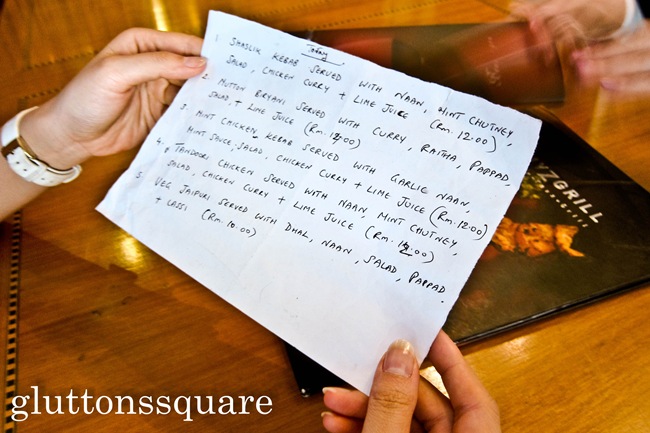 Today
1. SHASLIK KEBAB SERVED WITH NAAN, MINT CHUTNEY,
SALAD, CHICKEN CURRY + LIME JUICE (RM. 12:00)
2. MUTTON BRYANI SERVED WITH CURRY, RAITHA, PAPPAD,
SALAD, + LIME JUICE (RM. 12:00)
3. MINT CHICKEN KEBAB SERVED WITH GARLIC NAAN,
MINT SAUCE, SALAD, CHICKEN CURRY + LIME JUICE (RM. 12:00)
4. TANDOORI CHICKEN SERVED WITH NAAN, MINT CHUTNEY,
SALAD, CHICKEN CURRY + LIME JUICE (RM. 12:00)
5. VEG JAIPURI SERVED WITH DHAL, NAAN, SALAD, PAPPAD.
+ LASSI (RM. 10.00)
ZGRILL
gluttonssquare